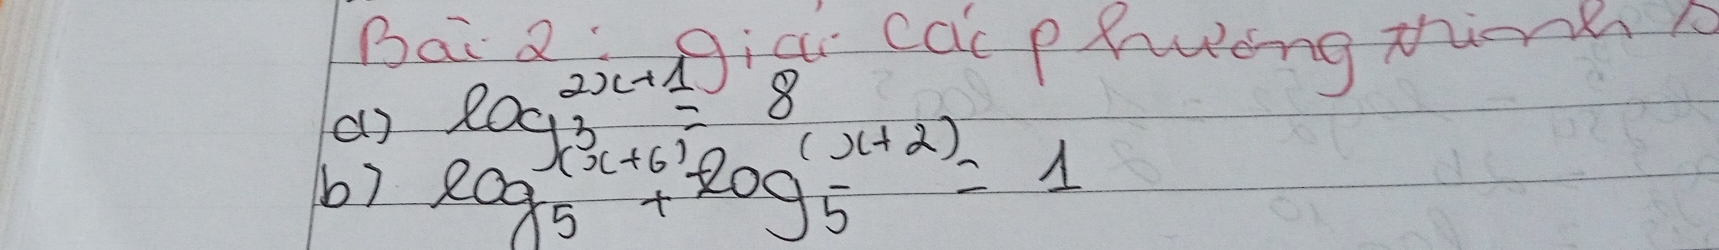 Bài 2: giải các phương trình
a) log₃^(2x+1) = 8
b) log₅^(x+6) + log₅^(x+2) = 1